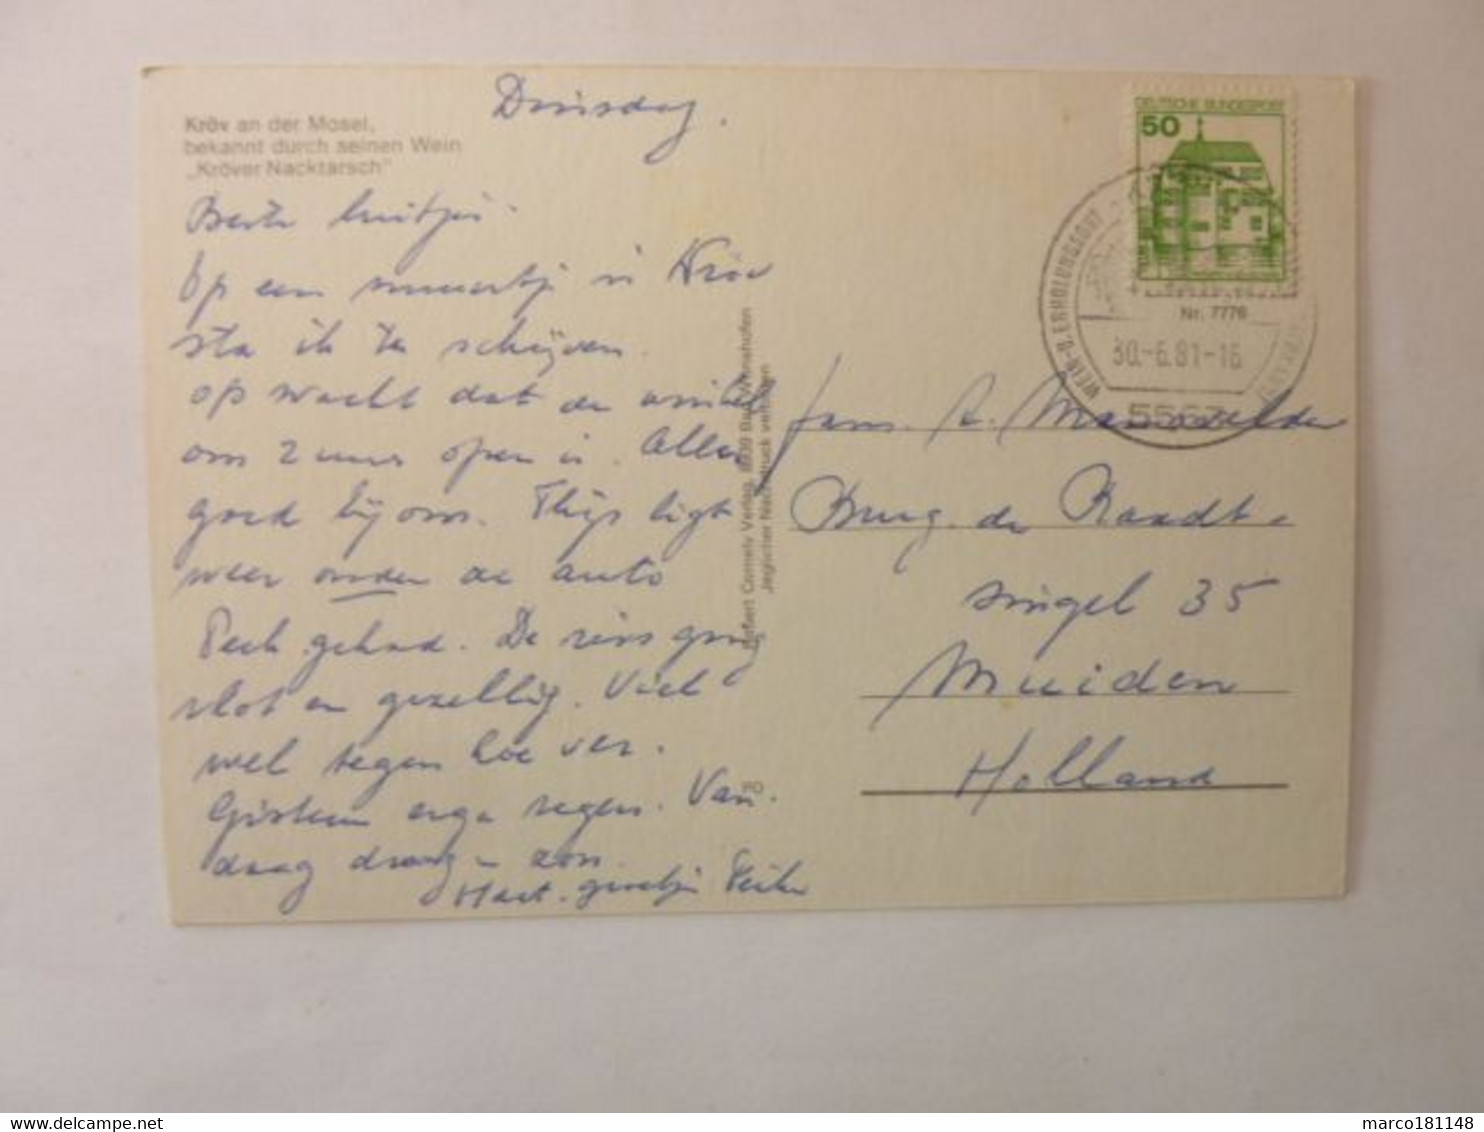 Kröv an der Mosel,
bekannt durch seinen Wein
„Kröver Nacktarsch"
Dinsdag.
Beste luitjes.
Op een muurtje in Kröv
sta ik te schrijven.
op wacht dat de winkel
om 2 uur open is. Alles
goed bij ons. Thijs ligt
weer onder de auto
Pech gehad. De reis ging
vlot en gezellig. Viel
wel tegen hoe ver.
Gisteren erge regen. Van.
daag droog - zon.
Hart. groetjes
Robert Cornely Verlag, 8939 Bad Wörishofen
Jeglicher Nachdruck verboten
DEUTSCHE BUNDESPOST
50
WEIN-U.ERHOLUNGSORT
Nr. 7776
30.-6.81-16
Fam. A. Mansvelder
Burg. de Raadt-
singel 35
Muiden
Holland
marco181148